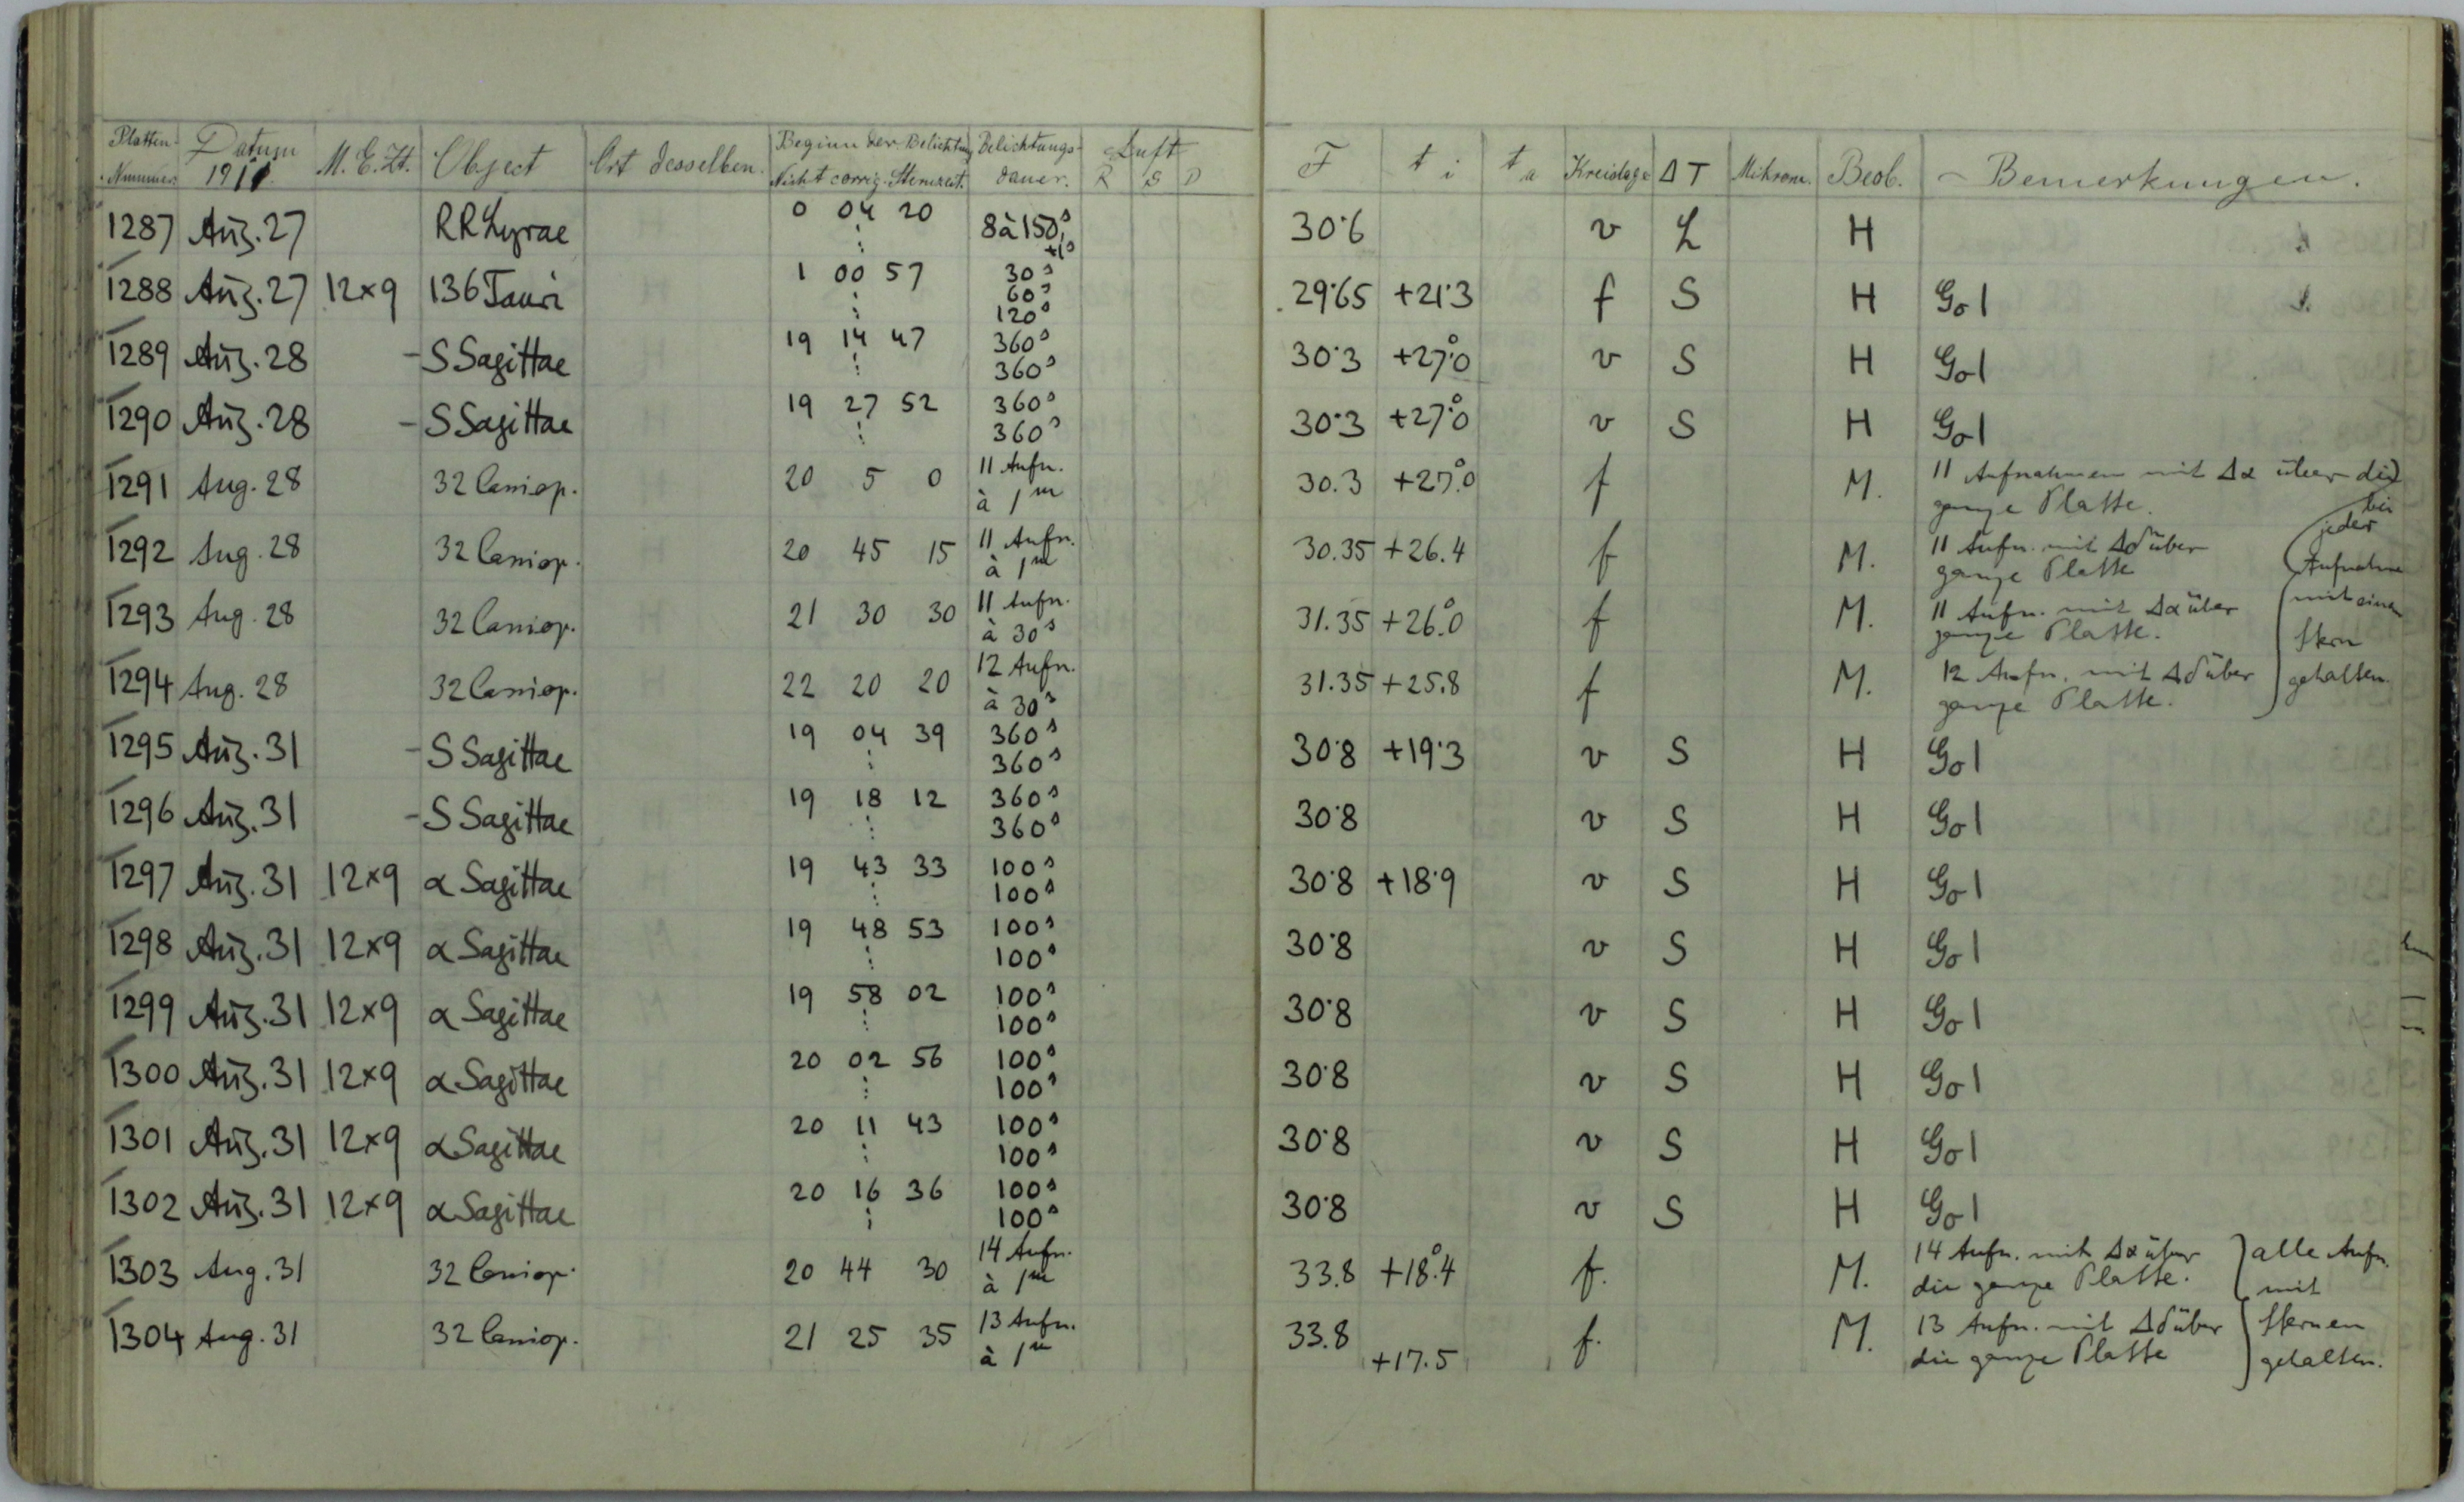 Platten-Nummer. Datum 1911. M.E.Zt. Object Ort desselben. Beginn der Belichtung Nicht corrig. Sternzeit. Belichtungs-dauer. Luft R S D F t i t a Kreislage Δ T Mikrom. Beob. Bemerkungen.
1287 Aug. 27 RR Lyrae 0 04 20 8 à 150s 30·6 v L H
1288 Aug. 27 12×9 136 Tauri 1 00 57 30s 60s 120s 29·65 +21·3 f S H Go 1
1289 Aug. 28 - S Sagittae 19 14 47 360s 360s 30·3 +27·0° v S H Go 1
1290 Aug. 28 - S Sagittae 19 27 52 360s 360s 30·3 +27·0° v S H Go 1
1291 Aug. 28 32 Cassiop. 20 5 0 11 Aufn. à 1m 30.3 +27.0° f M. 11 Aufnahmen mit Δα über die ganze Platte.
1292 Aug. 28 32 Cassiop. 20 45 15 11 Aufn. à 1m 30.35 +26.4 f M. 11 Aufn. mit Δδ über ganze Platte
1293 Aug. 28 32 Cassiop. 21 30 30 11 Aufn. à 30s 31.35 +26.0° f M. 11 Aufn. mit Δα über ganze Platte.
1294 Aug. 28 32 Cassiop. 22 20 20 12 Aufn. à 30s 31.35 +25.8 f M. 12 Aufn. mit Δδ über ganze Platte.
bei
jeder
Aufnahme
mit einem
Stern
gehalten.
1295 Aug. 31 - S Sagittae 19 04 39 360s 360s 30·8 +19·3 v S H Go 1
1296 Aug. 31 - S Sagittae 19 18 12 360s 360s 30·8 v S H Go 1
1297 Aug. 31 12×9 α Sagittae 19 43 33 100s 100s 30·8 +18·9 v S H Go 1
1298 Aug. 31 12×9 α Sagittae 19 48 53 100s 100s 30·8 v S H Go 1
1299 Aug. 31 12×9 α Sagittae 19 58 02 100s 100s 30·8 v S H Go 1
1300 Aug. 31 12×9 α Sagittae 20 02 56 100s 100s 30·8 v S H Go 1
1301 Aug. 31 12×9 α Sagittae 20 11 43 100s 100s 30·8 v S H Go 1
1302 Aug. 31 12×9 α Sagittae 20 16 36 100s 100s 30·8 v S H Go 1
1303 Aug. 31 32 Cassiop. 20 44 30 14 Aufn. à 1m 33.8 +18.4° f. M. 14 Aufn. mit Δα über die ganze Platte.
1304 Aug. 31 32 Cassiop. 21 25 35 13 Aufn. à 1m 33.8 +17.5 f. M. 13 Aufn. mit Δδ über die ganze Platte
alle Aufn.
mit
Sternen
gehalten.